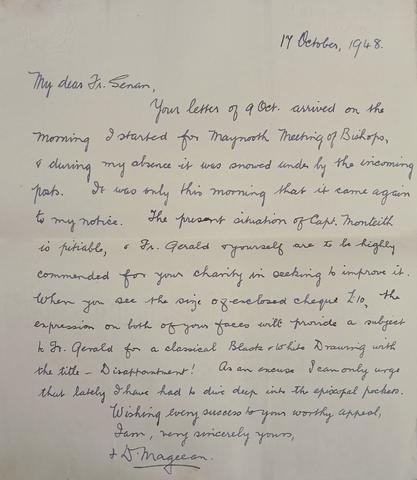 17 October, 1948.
My dear Fr. Senan,
Your letter of 9 Oct. arrived on the
morning I started for Maynooth Meeting of Bishops,
& during my absence it was snowed under by the incoming
posts. It was only this morning that it came again
to my notice. The present situation of Capt. Monteith
is pitiable, & Fr. Gerald & yourself are to be highly
commended for your charity in seeking to improve it.
When you see the size of enclosed cheque £10, the
expression on both of your faces will provide a subject
to Fr. Gerald for a classical Black & White Drawing with
the title – Disappointment! As an excuse I can only urge
that lately I have had to dive deep into the episcopal pockets.
Wishing every success to your worthy appeal,
I am, very sincerely yours,
+ D. Mageean.